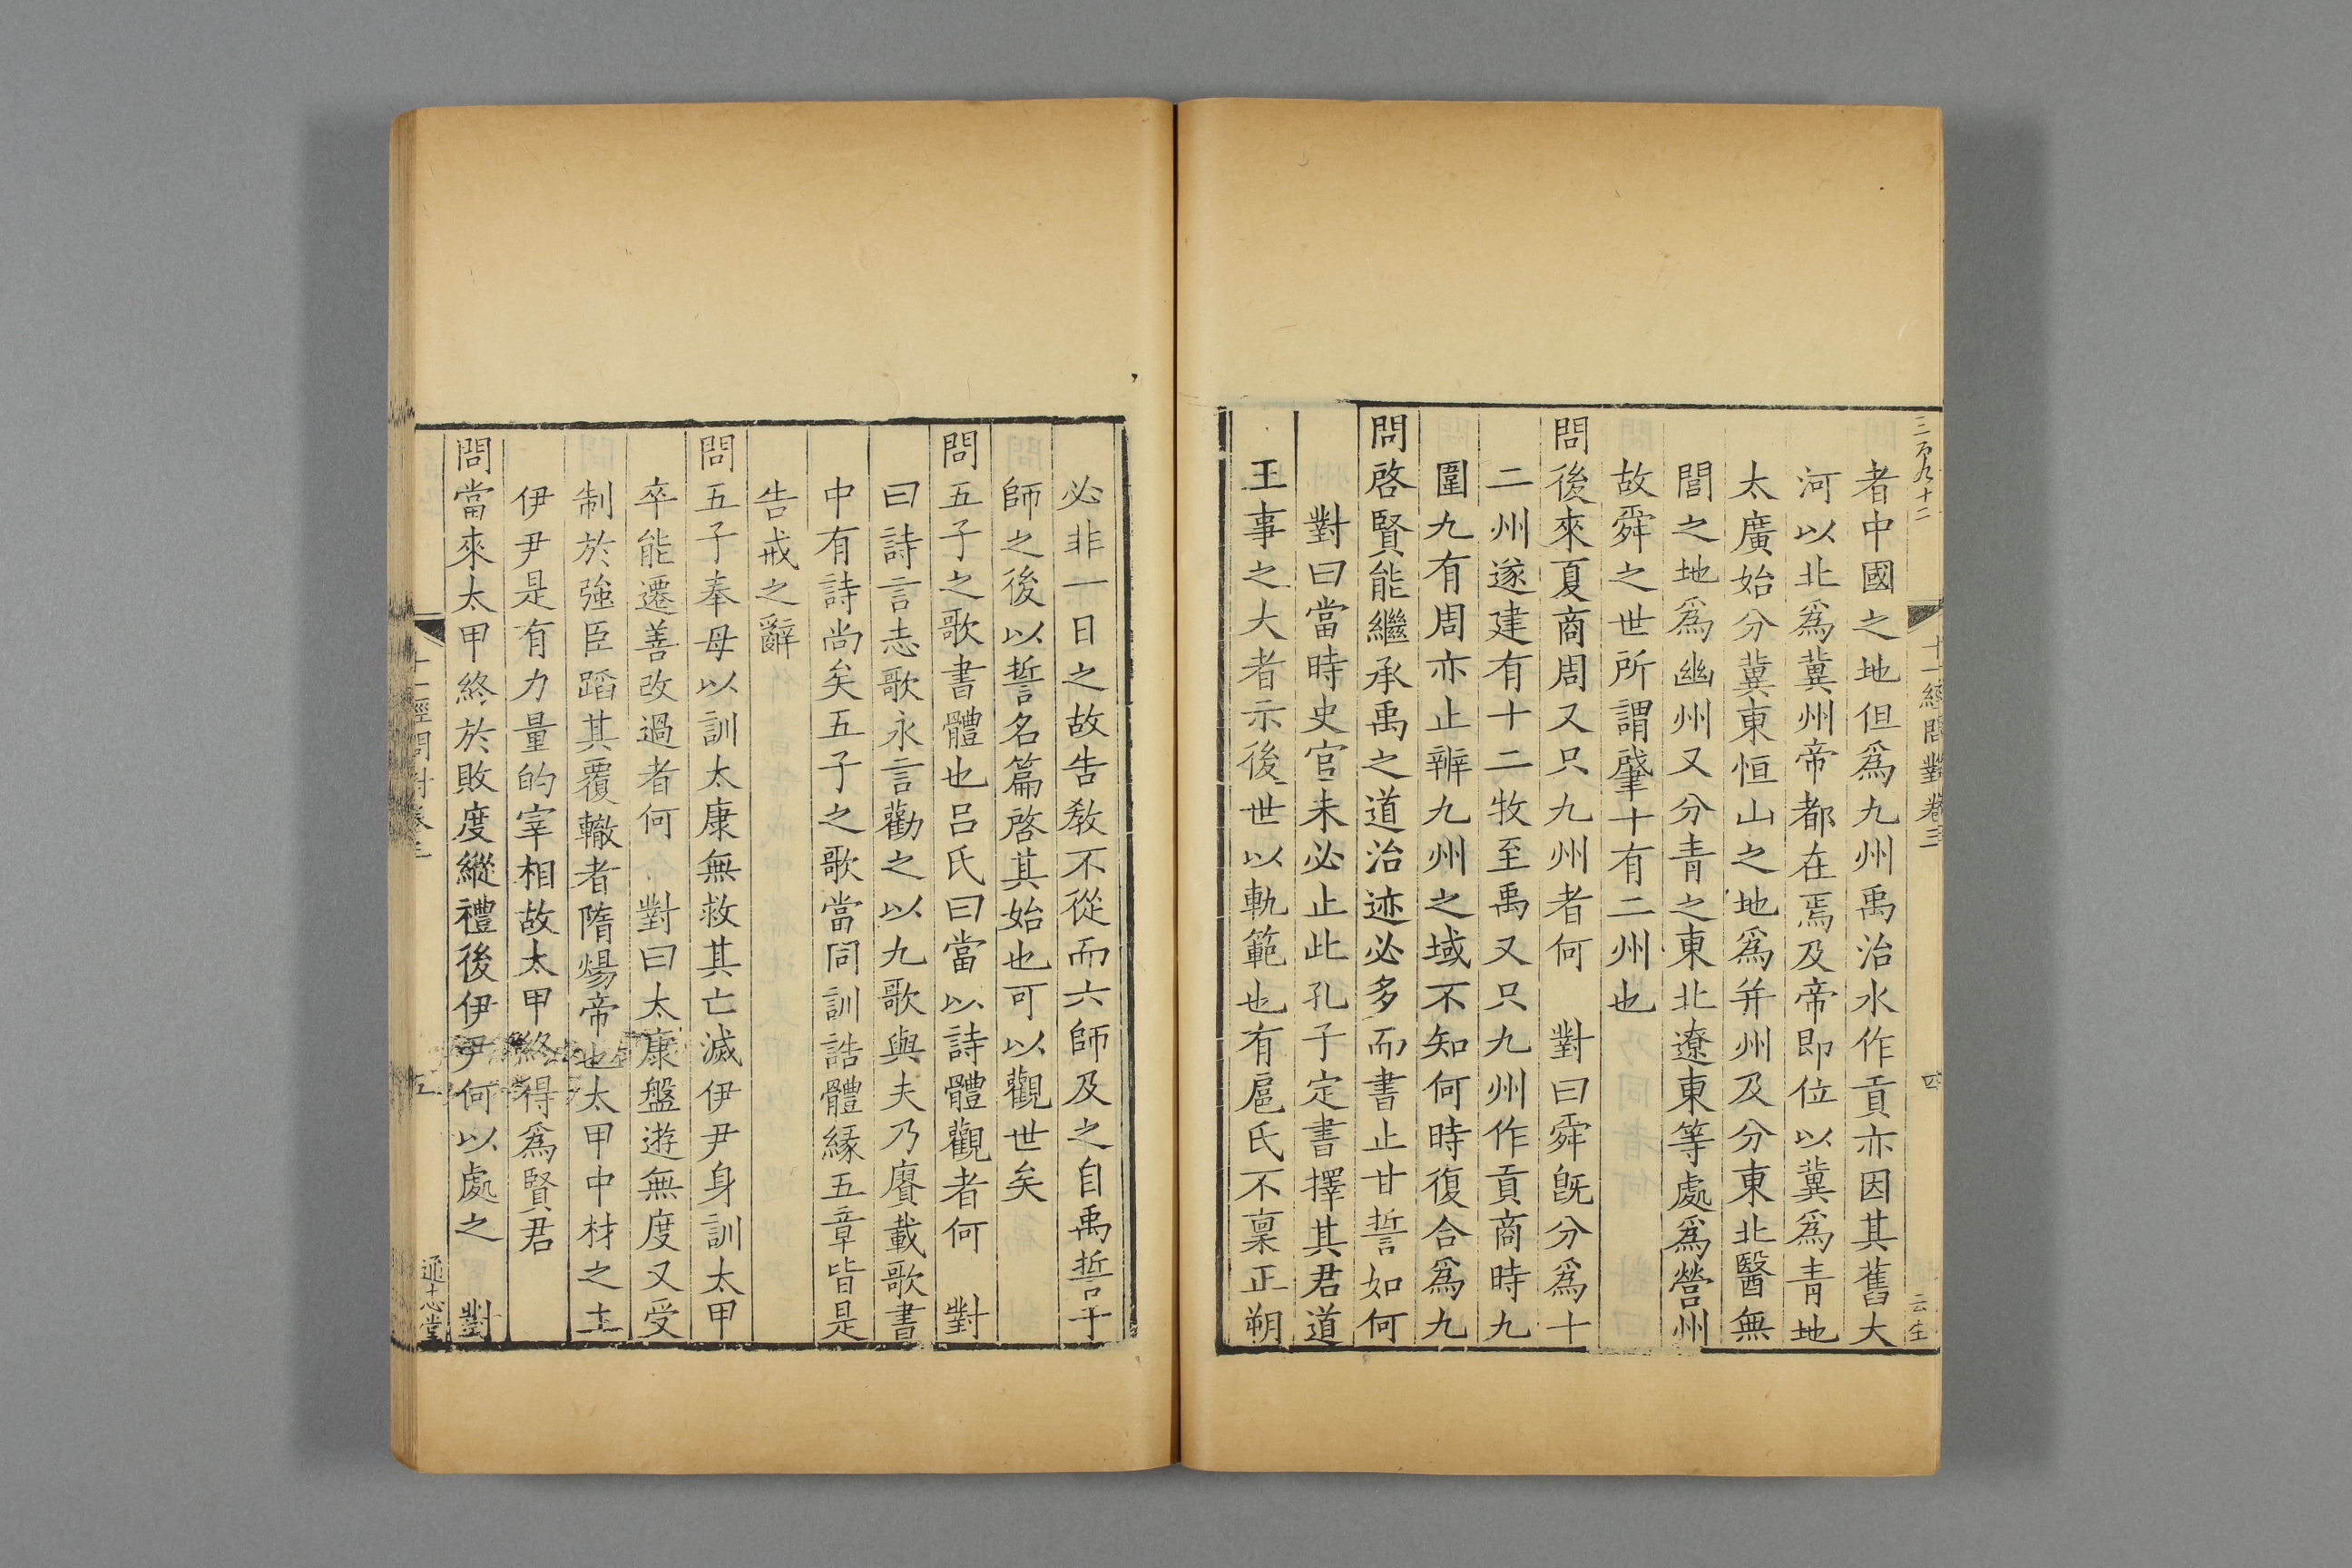 三百九十二
十一經問對卷三
四
云生
者中國之地但爲九州禹治水作貢亦因其舊大
河以北爲冀州帝都在焉及帝即位以冀爲青地
太廣始分冀東恒山之地爲并州及分東北醫無
閭之地爲幽州又分青之東北遼東等處爲營州
故舜之世所謂肇十有二州也
問後來夏商周又只九州者何　對曰舜旣分爲十
二州遂建有十二牧至禹又只九州作貢商時九
圍九有周亦止辨九州之域不知何時復合爲九
問啓賢能繼承禹之道治迹必多而書止甘誓如何
對曰當時史官未必止此孔子定書擇其君道
王事之大者示後世以軌範也有扈氏不稟正朔
必非一日之故告教不從而六師及之自禹誓于
師之後以誓名篇啓其始也可以觀世矣
問五子之歌書體也呂氏曰當以詩體觀者何　對
曰詩言志歌永言勸之以九歌與夫乃賡載歌書
中有詩尚矣五子之歌當同訓誥體緣五章皆是
告戒之辭
問五子奉母以訓太康無救其亡滅伊尹身訓太甲
卒能遷善改過者何　對曰太康盤遊無度又受
制於強臣蹈其覆轍者隋煬帝也太甲中材之主
伊尹是有力量的宰相故太甲終得爲賢君
問當來太甲終於敗度縱禮後伊尹何以處之　對
十一經問對卷三
五
通志堂